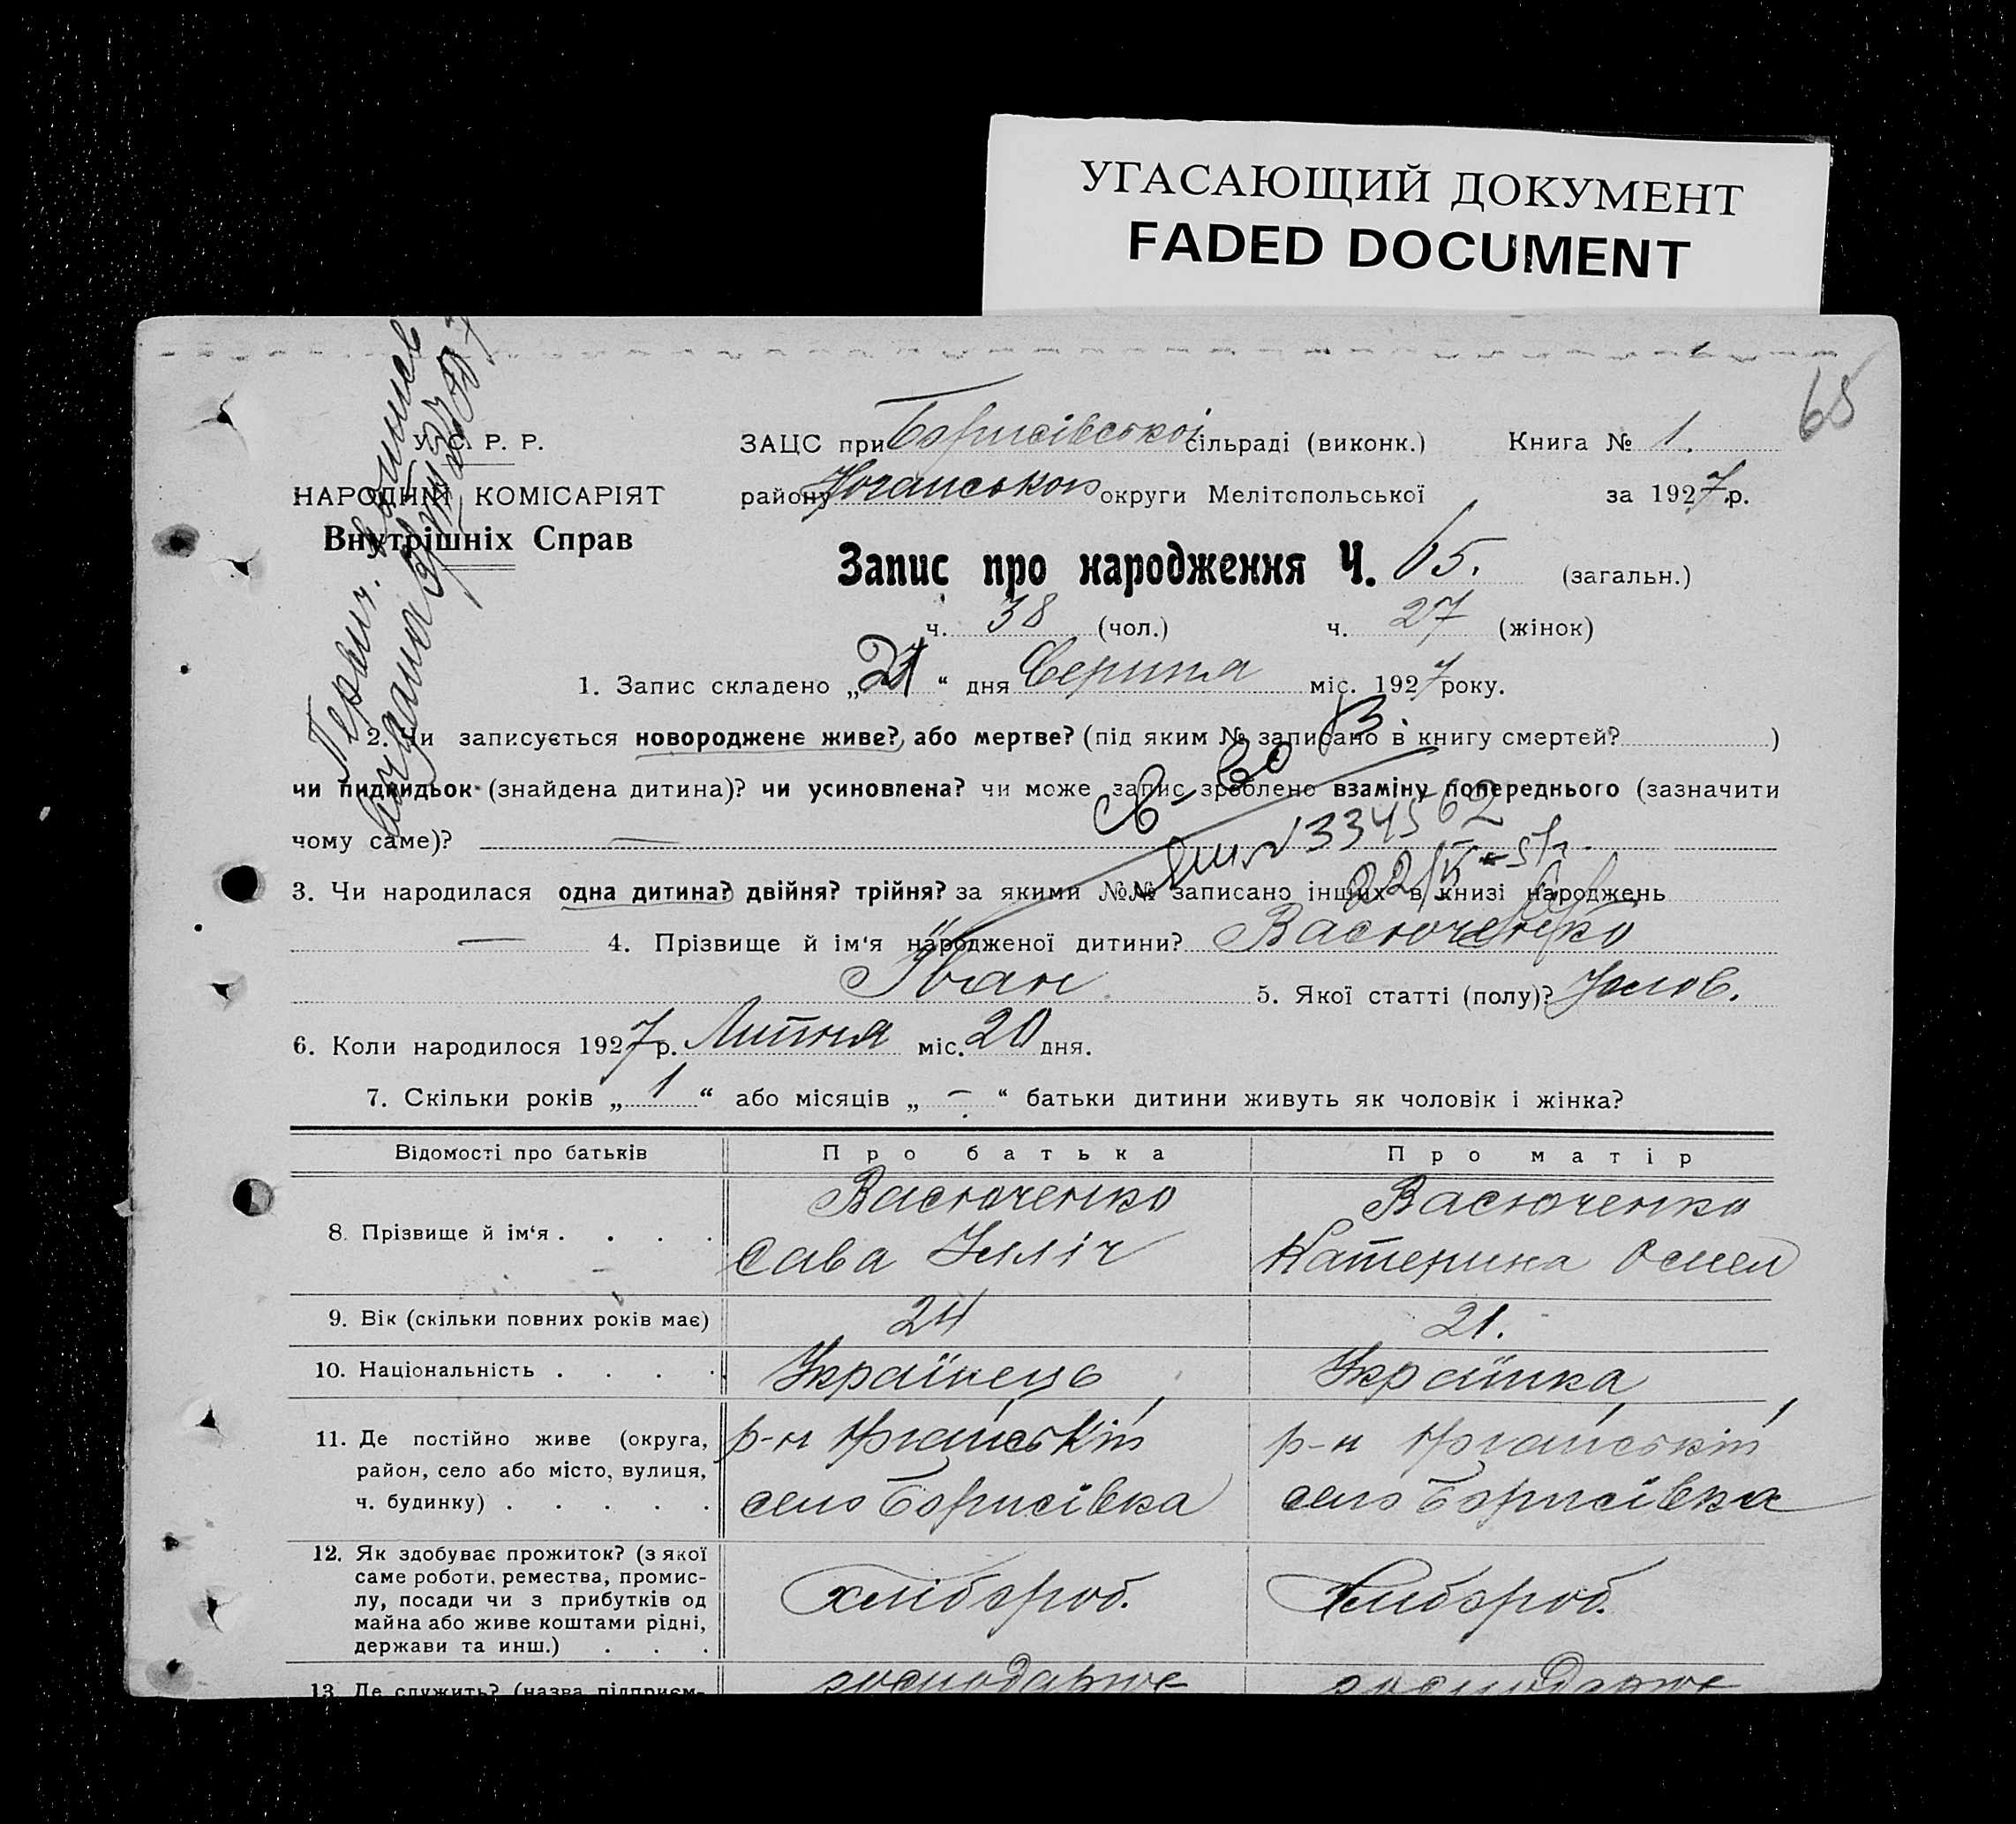 УГАСАЮЩИЙ ДОКУМЕНТ
FADED DOCUMENT
65
У. С. Р. Р.
НАРОДНИЙ КОМІСАРІЯТ
Внутрішніх Справ
ЗАЦС при Борисівської сільраді (виконк.) Книга № 1.
району Ногайського округи Мелітопольської за 1927 р.
Запис про народження Ч. 65. (загальн.)
ч. 38 (чол.) ч. 27 (жінок)
1. Запис складено „21“ дня Серпня міс. 1927 року.
2. Чи записується новороджене живе? або мертве? (під яким № записано в книгу смертей? )
чи пидкидьок (знайдена дитина)? чи усиновлена? чи може запис зроблено взаміну попереднього (зазначити
чому саме)? —
334562
22/V - 51 г.
3. Чи народилася одна дитина? двійня? трійня? за якими №№ записано інших в книзі народжень
— 4. Прізвище й ім‘я народженої дитини? Васюченко
Іван 5. Якої статті (полу)? Чолов.
6. Коли народилося 1927 р. Липня міс. 20 дня.
7. Скільки років „ 1 “ або місяців „ - “ батьки дитини живуть як чоловік і жінка?
Відомості про батьків Про батька Про матір
8. Прізвище й ім‘я . . . . Васюченко Васюченко
Сава Ілліч Катерина
9. Вік (скільки повних років має) 24 21.
10. Національність . . . . Українець Українка
11. Де постійно живе (округа, р-н Ногайській р-н Ногайській
район, село або місто, вулиця,
ч. будинку) . . . . . село Борисівка село Борисівка
12. Як здобуває прожиток? (з якої
саме роботи, ремества, промис-
лу, посади чи з прибутків од хлібороб. хлібороб.
майна або живе коштами рідні,
держави та инш.) . . .
13. Де служить? (назва підприєм-